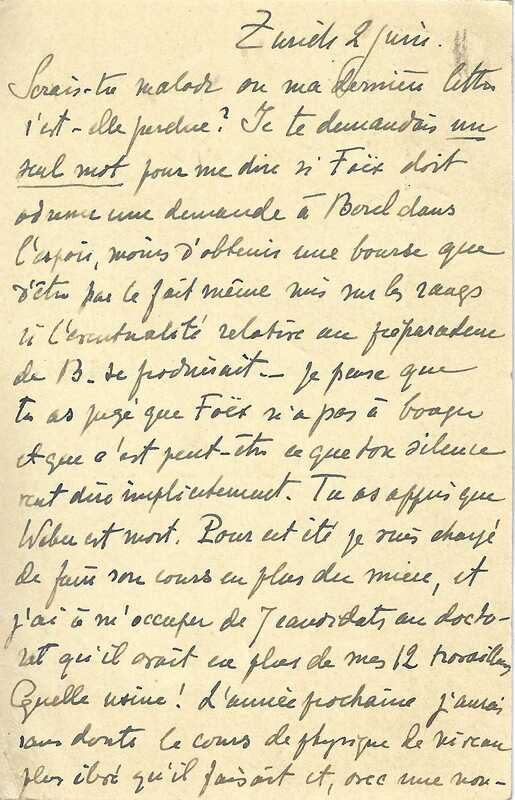 Zurich 2 juin.
Serais-tu malade ou ma dernière lettre
s'est-elle perdue? Je te demandais un
seul mot pour me dire si Foëx doit
adresser une demande à Borel dans
l'espoir, moins d'obtenir une bourse que
d'être par le fait même mis sur les rangs
si l'éventualité relative au préparateur
de B. se produisait. — Je pense que
tu as jugé que Foëx n'a pas à bouger
et que c'est peut-être ce que ton silence
veut dire implicitement. Tu as appris que
Weber est mort. Pour cet été je suis chargé
de faire son cours en plus du mien, et
j'ai à m'occuper de 7 candidats au docto-
rat qu'il avait en plus de mes 12 travailleurs
Quelle usine! L'année prochaine j'aurai
sans doute le cours de physique de niveau
plus élevé qu'il faisait et, avec une nou-